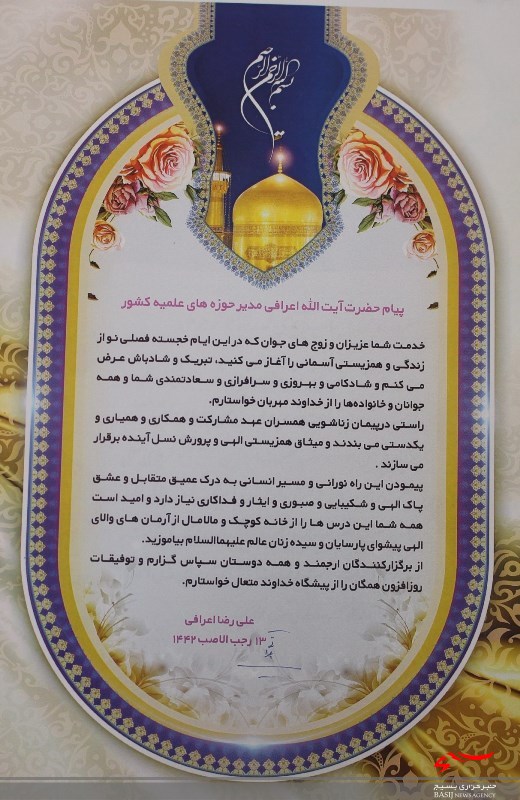 بسم الله الرحمن الرحیم
پیام حضرت آیت الله اعرافی مدیر حوزه های علمیه کشور
خدمت شما عزیزان و زوج های جوان که در این ایام خجسته فصلی نو از
زندگی و همزیستی آسمانی را آغاز می کنید، تبریک و شادباش عرض
می کنم و شادکامی و بهروزی و سرافرازی و سعادتمندی شما و همه
جوانان و خانواده‌ها را از خداوند مهربان خواستارم.
راستی درپیمان زناشویی همسران عهد مشارکت و همکاری و همیاری و
یکدستی می بندند و میثاق همزیستی الهی و پرورش نسل آینده برقرار
می سازند .
پیمودن این راه نورانی و مسیر انسانی به درک عمیق متقابل و عشق
پاک الهی و شکیبایی و صبوری و ایثار و فداکاری نیاز دارد و امید است
همه شما این درس ها را از خانه کوچک و مالامال از آرمان های والای
الهی پیشوای پارسایان و سیده زنان عالم علیهماالسلام بیاموزید.
از برگزارکنندگان ارجمند و همه دوستان سپاس گزارم و توفیقات
روزافزون همگان را از پیشگاه خداوند متعال خواستارم.
علی رضا اعرافی
۱۳ رجب الاصب ۱۴۴۲
خبرگزاری بسیج
BASIJ NEWS AGENCY